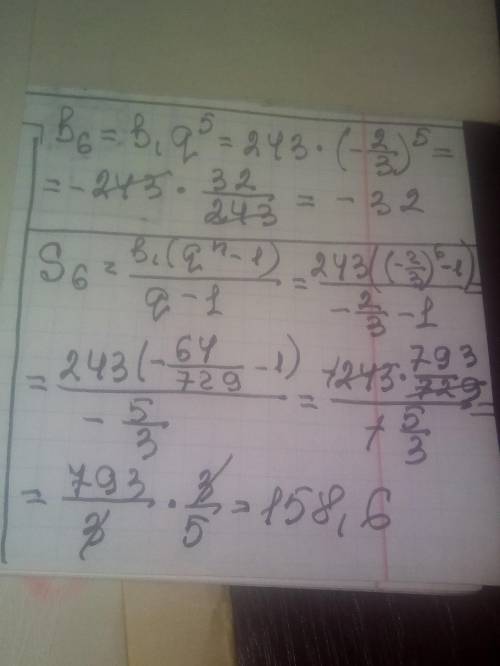 b₆ = b₁q⁵ = 243 · (-2/3)⁵ =
= -243 · 32/243 = -32
S₆ = b₁(qⁿ-1)/(q-1) = 243((-2/3)⁶-1)/(-2/3-1) =
= 243(-64/729-1)/(-5/3) = +243 · 793/729/(+5/3) =
= 793/3 · 3/5 = 158,6